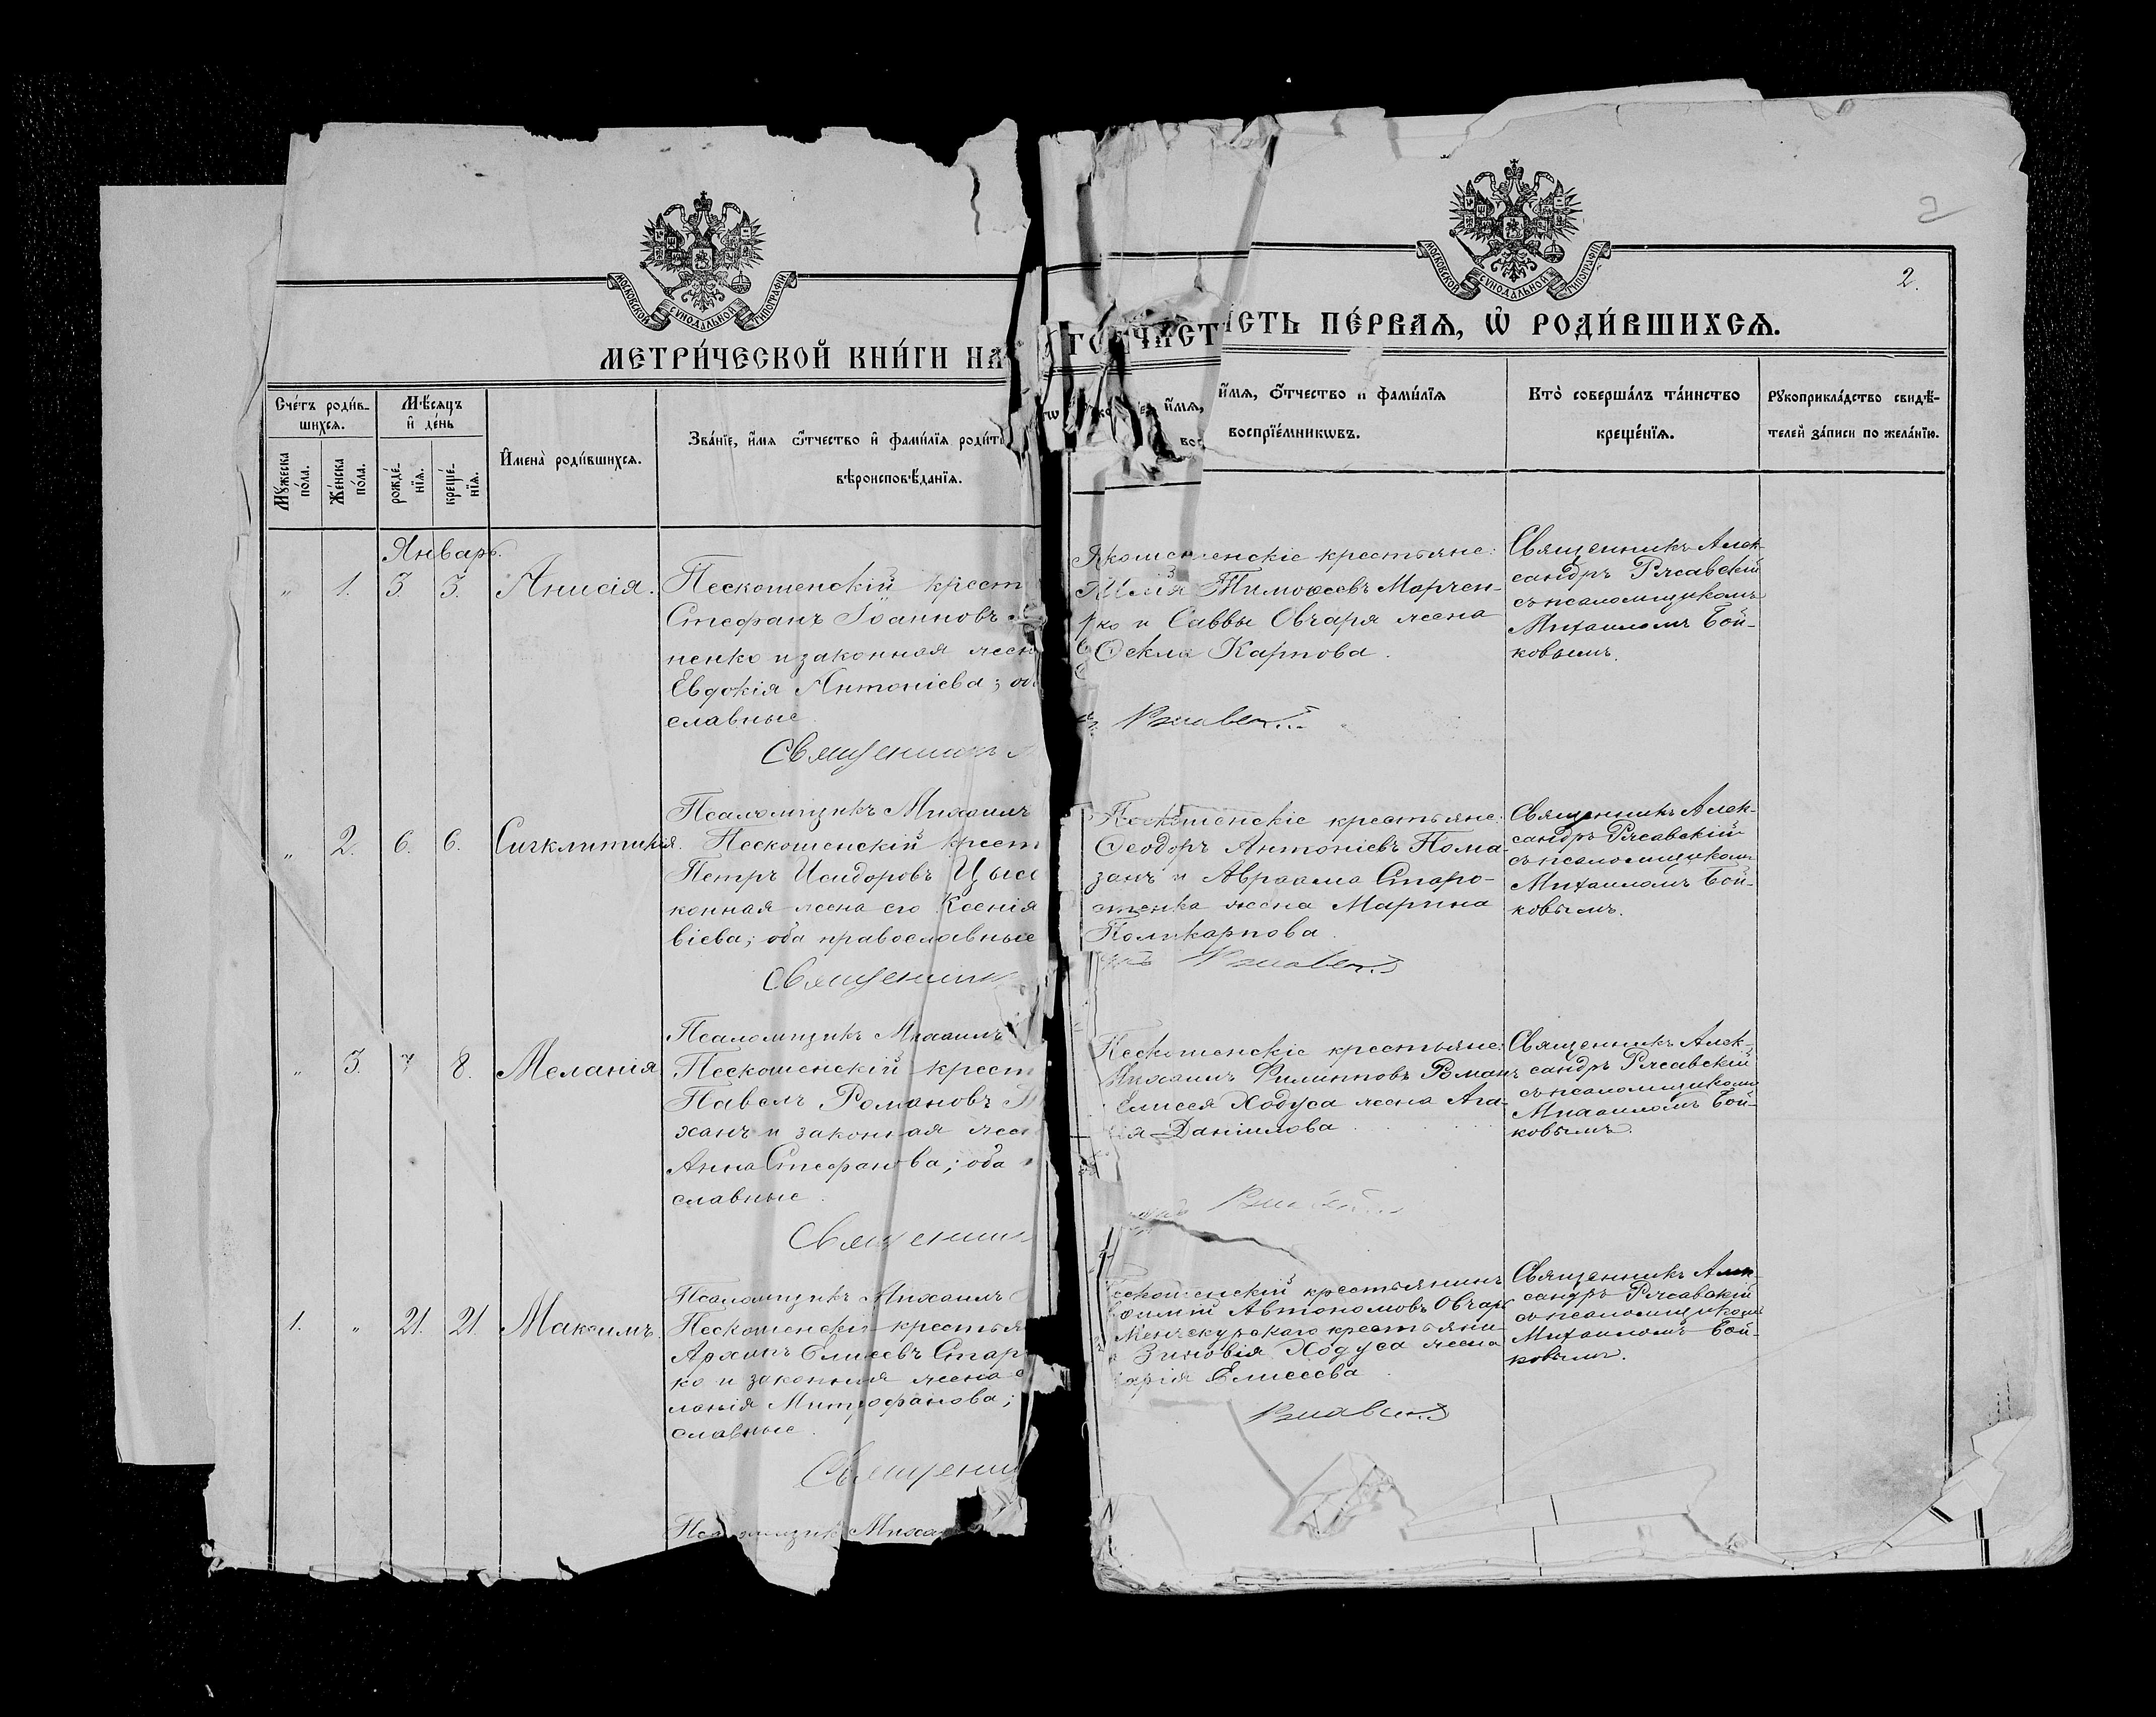 2
2.
МОСКОВСКОЙ СѴНОДАЛЬНОЙ ТИПОГРАФІИ
МОСКОВСКОЙ СѴНОДАЛЬНОЙ ТИПОГРАФІИ
МЕТРИ́ЧЕСКОЙ КНИ́ГИ НА
ЧАСТ
СТЬ ПЕ́РВАѦ, Ѡ҆ РОДИ́ВШИХСѦ.
Сче́тъ роди́в-
шихсѧ.
Мꙋ́жеска по́ла.
Же́нска по́ла.
Мѣ́сѧцъ
и҆ де́нь
рожде́-
нїѧ.
креще́-
нїѧ.
И҆мена̀ роди́вшихсѧ.
Зва́нїе, и҆́мѧ ѻ҆́тчество и҆ фами́лїѧ роди́т
вѣроисповѣ́данїѧ.
и҆́мѧ,
вос
и҆́мѧ, ѻ҆́тчество и фами́лїѧ
воспрїе́мникѡвъ.
Кто̀ соверша́лъ та́инство
креще́нїѧ.
Рꙋкоприкла́дство свидѣ́-
телей за́писи по жела́нїю.
Январь.
" 1. 3. 3. Анисія.
Пескошенскій крест
Стефанъ Іоанновъ
ненко и законная жен
Евдокія Антоніева; об
славные
Священникъ А
Якоменскіе крестьяне:
Илія Тимоѳеевъ Марчен-
ко и Саввы Овчаря жена
Ѳекла Карпова.
Священникъ Алек-
сандръ Рясавскій
съ псаломщикомъ
Михаиломъ Бой-
ковымъ.
Псаломщикъ Михаилъ
" 2. 6. 6. Сигклитикія.
Пескошенскій крест
Петръ Исидоровъ Цыс
конная жена его Ксенія
віева; оба православные
Священник
Пескошенскіе крестьяне:
Ѳеодоръ Антоніевъ Пома-
занъ и Авраама Старо-
стенка жена Марина
Поликарпова.
Священникъ Алек-
сандръ Рясавскій
съ псаломщикомъ
Михаиломъ Бой-
ковымъ.
Псаломщикъ Михаилъ
" 3. 7 8. Меланія
Пескошенскій крест
Павелъ Романовъ
ханъ и законная жен
Анна Стефанова; оба
славные.
Священни
Пескошенскіе крестьяне:
Михаилъ Филипповъ Романъ
Елисея Ходуса жена Ага-
ія Даніилова.
Священникъ Алек-
сандръ Рясавскій
съ псаломщикомъ
Михаиломъ Бой-
ковымъ.
Псаломщикъ Михаилъ
1. " 21. 21. Максимъ.
Пескошенскій крестья
Архипъ Елисеевъ Стар
ко и законная жена
ланія Митрофанова;
славные.
Священни
ескошенскій крестьянинъ
ѳимій Автономовъ Овчаръ
Менчекурскаго крестьяни-
Зиновія Ходуса жена
арія Елисеева
Священникъ Алек-
сандръ Рясавскій
съ псаломщикомъ
Михаиломъ Бой-
ковымъ.
Псаломщикъ Миха